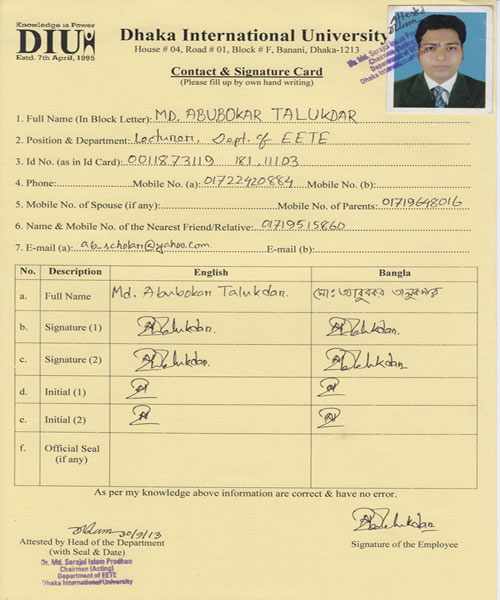 Knowledge is Power
DIU
Estd. 7th April, 1995
Dhaka International University
House # 04, Road # 01, Block # F, Banani, Dhaka-1213
Contact & Signature Card
(Please fill up by own hand writing)
Attested
Md. Serajul Islam
Chairman
Department of
Dhaka International
1. Full Name (In Block Letter): MD. ABUBOKAR TALUKDAR
2. Position & Department: Lecturer, Dept. of EETE
3. Id No. (as in Id Card): 0011873119 181.11103
4. Phone: Mobile No. (a): 01722420884 Mobile No. (b):
5. Mobile No. of Spouse (if any): Mobile No. of Parents: 01719648016
6. Name & Mobile No. of the Nearest Friend/Relative: 01719515860
7. E-mail (a): ab_scholar@yahoo.com E-mail (b):
No. Description English Bangla
a. Full Name Md. Abubokar Talukdar. মোঃ আবুবকর তালুকদার
b. Signature (1) ATalukdar. ATalukdar.
c. Signature (2) ATalukdar. ATalukdar.
d. Initial (1)
e. Initial (2)
f. Official Seal
(if any)
As per my knowledge above information are correct & have no error.
30/9/13
Attested by Head of the Department
(with Seal & Date)
Dr. Md. Serajul Islam Prodhan
Chairman (Acting)
Department of EETE
Dhaka International University
ATalukdar.
Signature of the Employee